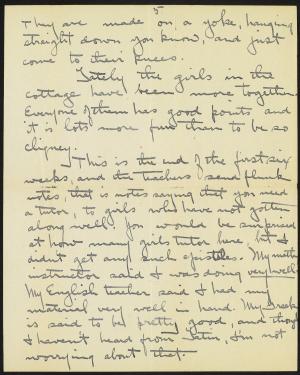 5
They are made on a yoke, hanging
straight down you know, and just
come to their knees.
Lately the girls in the
cottage have been more together.
Everyone of them has good points and
it is lots more fun them to be so
cliquey.
This is the end of the first six
weeks, and the teachers send flunk
notes, that is notes saying that you need
a tutor, to girls who have not gotten
along well. You would be surprised
at how many girls tutor here, but I
didn't get any such epistles. My math
instructor said I was doing very well.
My English teacher said I had my
material very well in hand. My Greek
is said to be pretty good, and though
I haven't heard from Latin, I'm not
worrying about that.